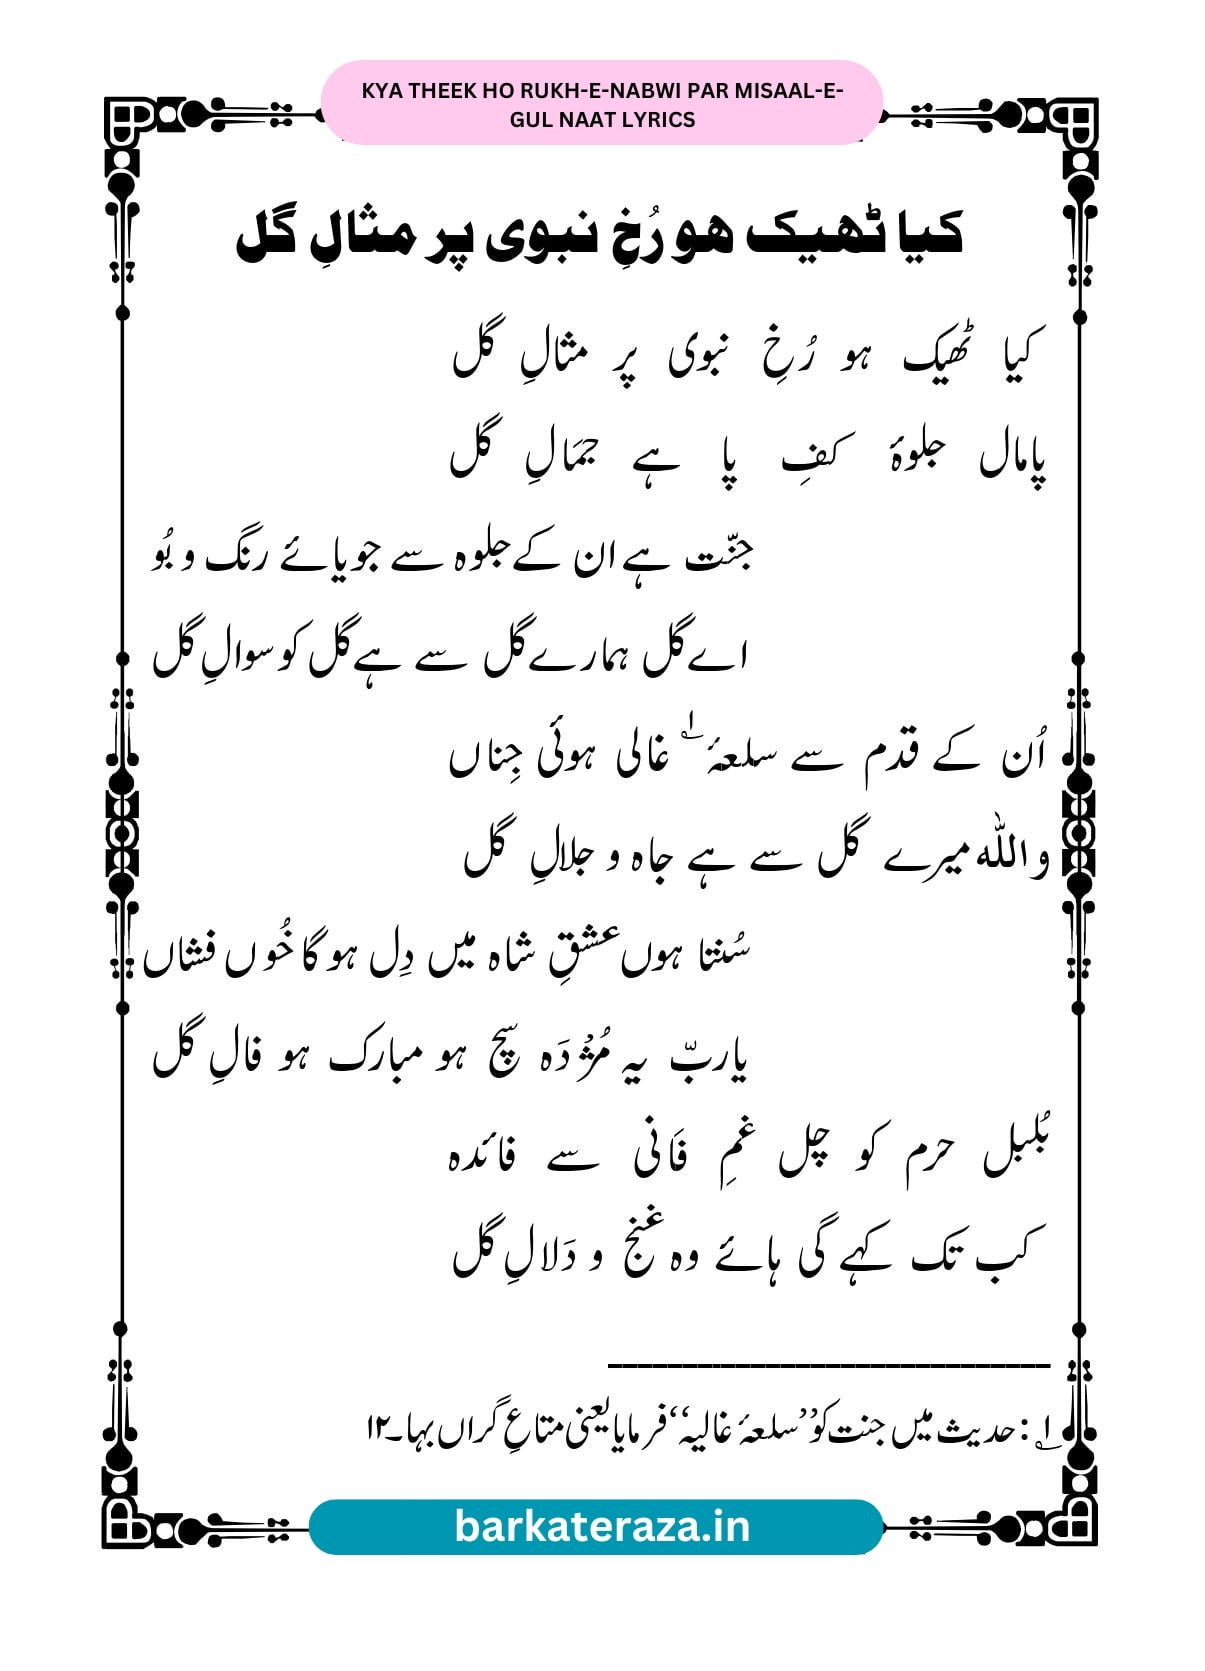 KYA THEEK HO RUKH-E-NABWI PAR MISAAL-E-
GUL NAAT LYRICS
کیا ٹھیک ھو رُخِ نبوی پر مثالِ گل
کیا ٹھیک ہو رُخِ نبوی پر مثالِ گل
پامال جلوۂ کفِ پا ہے جمَالِ گل
جنّت ہے ان کے جلوہ سے جویائے رنگ و بُو
اے گل ہمارے گل سے ہے گل کو سوالِ گل
اُن کے قدم سے سلعۂ ۱؎ غالی ہوئی جِناں
و اللہ میرے گل سے ہے جاہ و جلالِ گل
سُنتا ہوں عشقِ شاہ میں دِل ہوگا خُوں فشاں
یاربّ یہ مُژْدَہ سچ ہو مبارک ہو فالِ گل
بُلبل حرم کو چل غمِ فَانی سے فائدہ
کب تک کہے گی ہائے وہ غنج و دَلالِ گل
۱؎ : حدیث میں جنت کو ’’سلعۂ غالیہ‘‘ فرمایا یعنی متاعِ گراں بہا۔۱۲
barkateraza.in